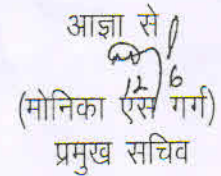 आज्ञा से
12/6
(मोनिका एस गर्ग)
प्रमुख सचिव